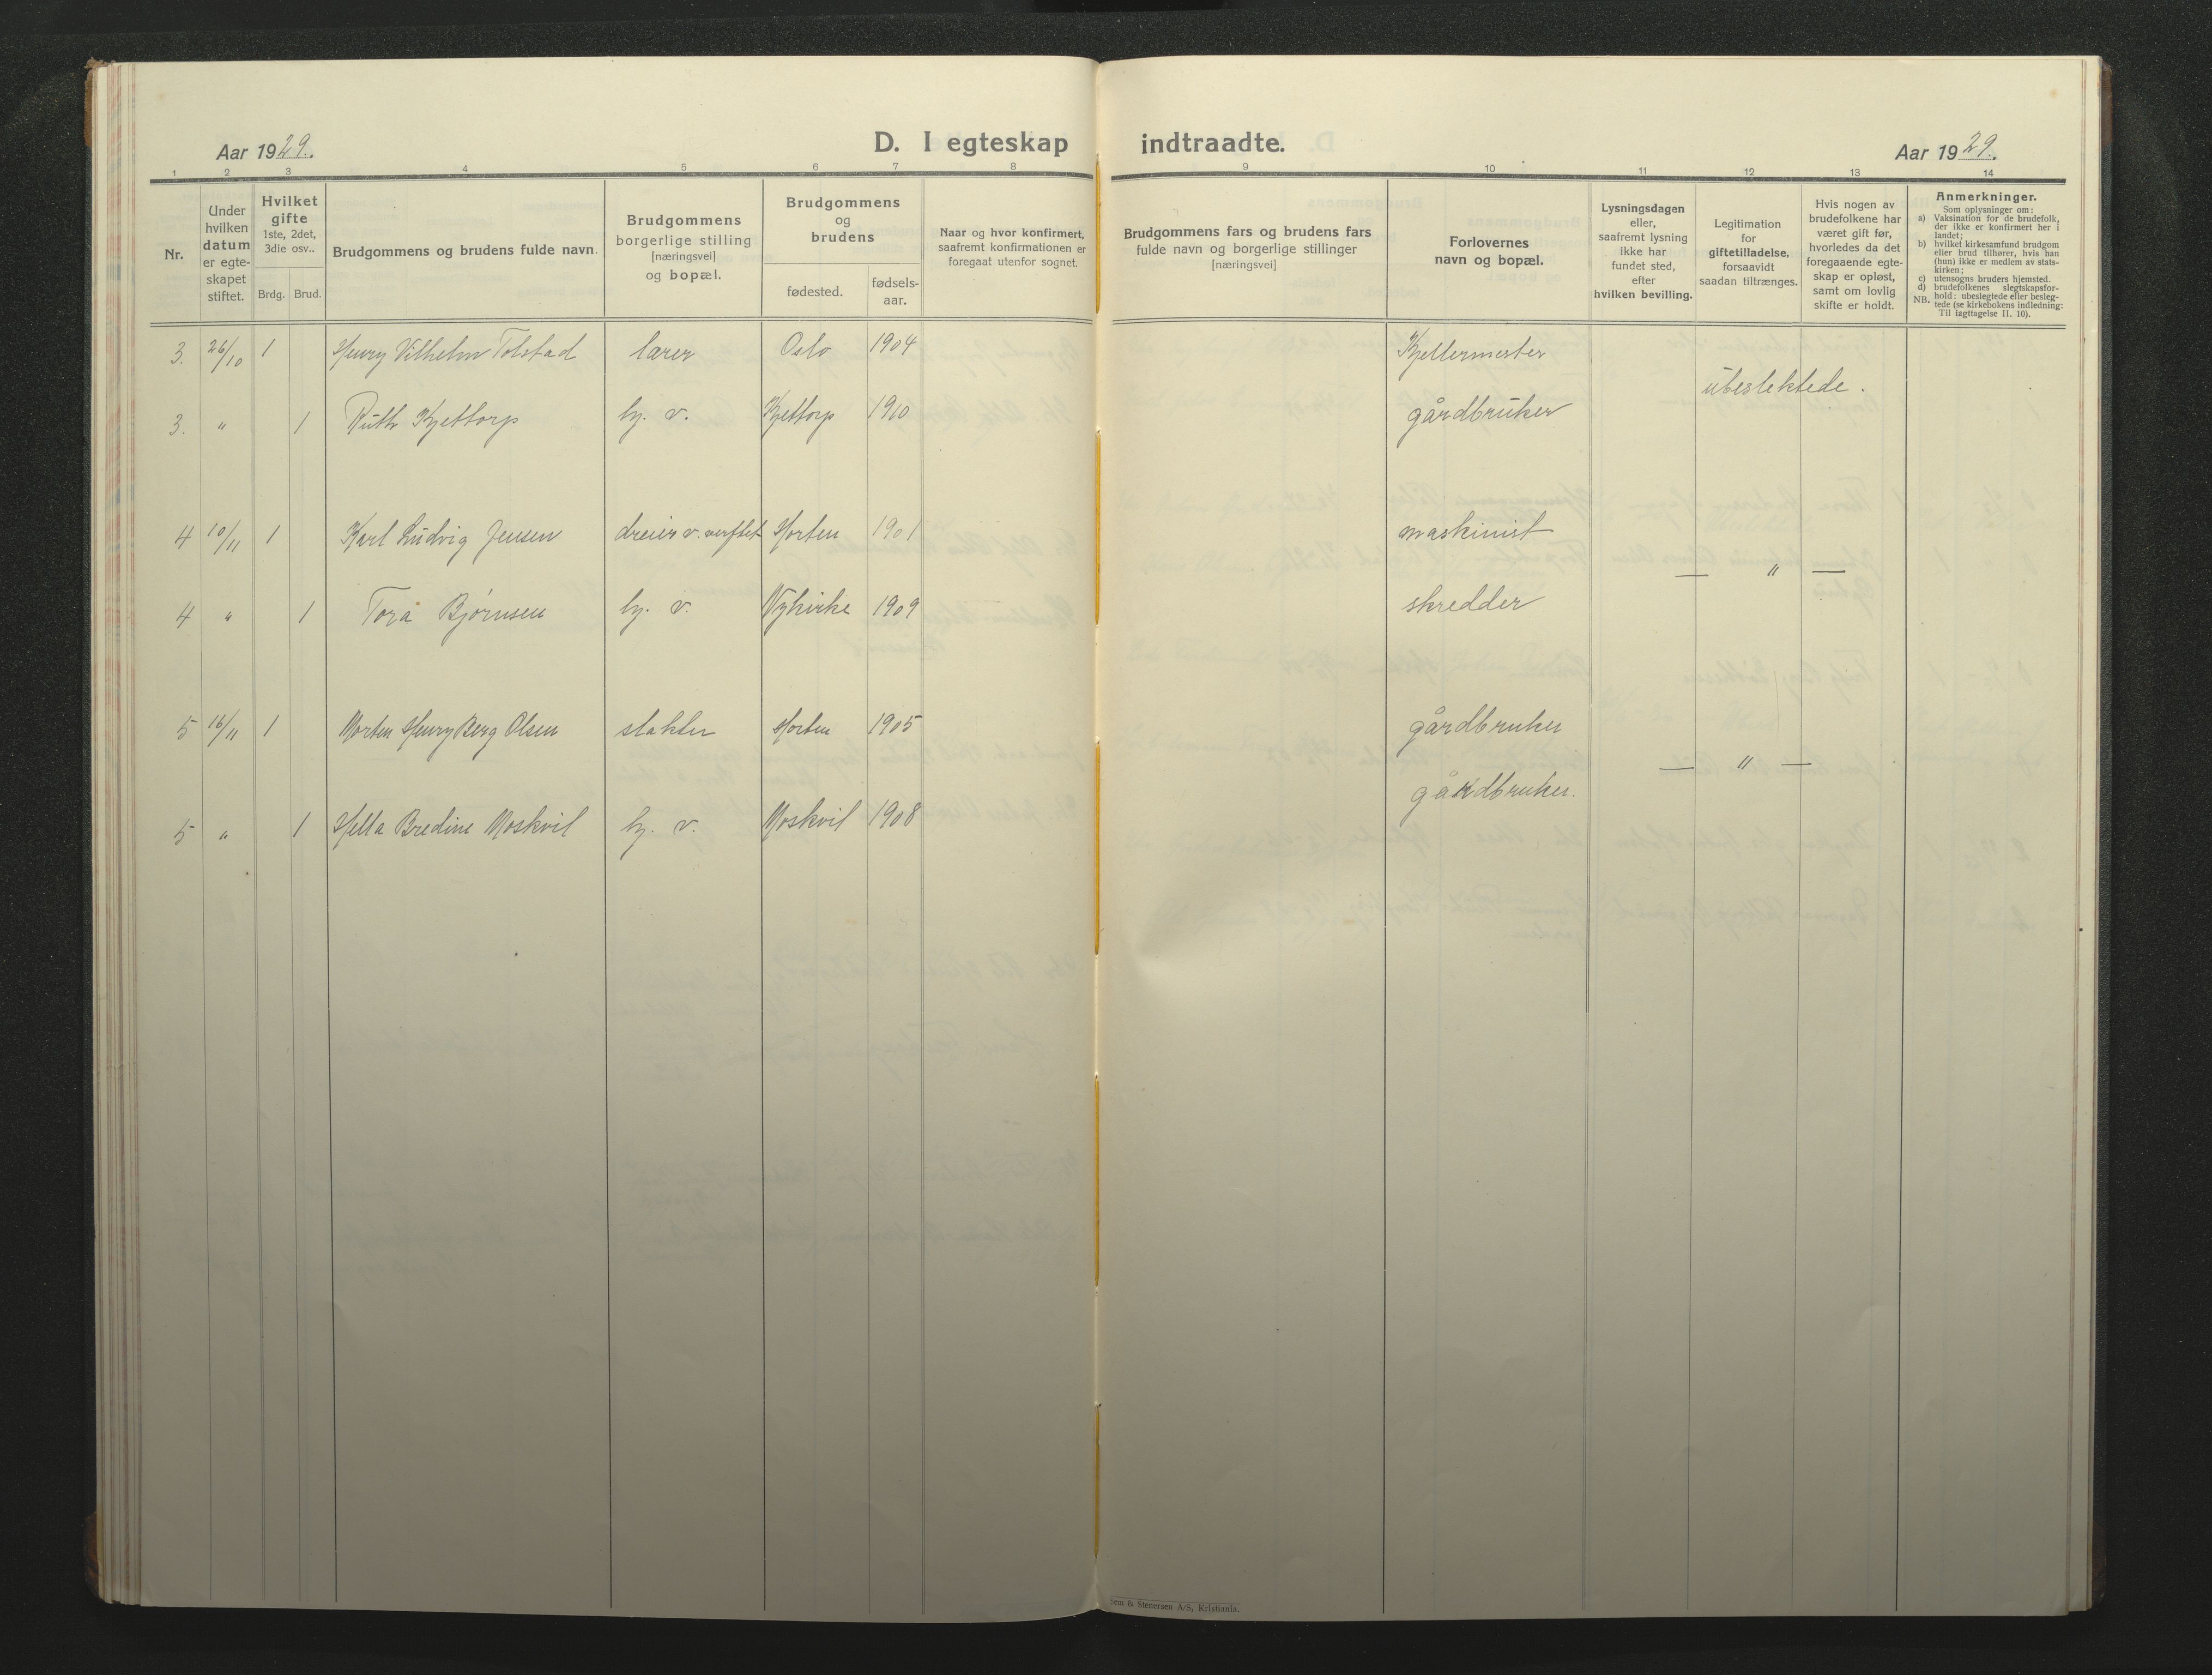 Aar 1929.
D. I egteskap indtraadte.
Aar 1929.
1 2 3 4 5 6 7 8 9 10 11 12 13 14
Nr.
Under
hvilken
datum
er egte-
skapet
stiftet.
Hvilket
gifte
1ste, 2det,
3die osv..
Brdg. Brud.
Brudgommens og brudens fulde navn.
Brudgommens
borgerlige stilling
[næringsvei]
og bopæl.
Brudgommens
og
brudens
fødested.
fødsels-
aar.
Naar og hvor konfirmert,
saafremt konfirmationen er
foregaat utenfor sognet.
Brudgommens fars og brudens fars
fulde navn og borgerlige stillinger
[næringsvei]
Forlovernes
navn og bopæl.
Lysningsdagen
eller,
saafremt lysning
ikke har
fundet sted,
efter
hvilken bevilling.
Legitimation
for
giftetilladelse,
forsaavidt
saadan tiltrænges.
Hvis nogen av
brudefolkene har
været gift før,
hvorledes da det
foregaaende egte-
skap er opløst,
samt om lovlig
skifte er holdt.
Anmerkninger.
Som oplysninger om:
a) Vaksination for de brudefolk,
der ikke er konfirmert her i
landet;
b) hvilket kirkesamfund brudgom
eller brud tilhører, hvis han
(hun) ikke er medlem av stats-
kirken;
c) utensogns bruders hjemsted.
d) brudefolkenes slegtskapsfor-
hold: ubeslegtede eller besleg-
NB. tede (se kirkebokens indledning:
Til iagttagelse II. 10).
3. 26/10 1 Henry Vilhelm Tolstad lærer Oslo 1904 Kjellermester
ubeslektede.
3. " 1 Ruth Kjettorp hj. v. Kjettorp 1910 gårdbruker
4 10/11 1 Karl Ludvig Jensen dreier v. verftet Horten 1901 maskinist
— " —
4 " 1 Tora Bjørnsen hj. v. Nykirke 1909 skredder
5 16/11 1 Morten Henry Berg Olsen slakter Horten 1905 gårdbruker
— " —
gårdbruker.
5 " 1 Hella Bredine Moskvil hj. v. Moskvil 1908
Sem & Stenersen A/S, Kristiania.